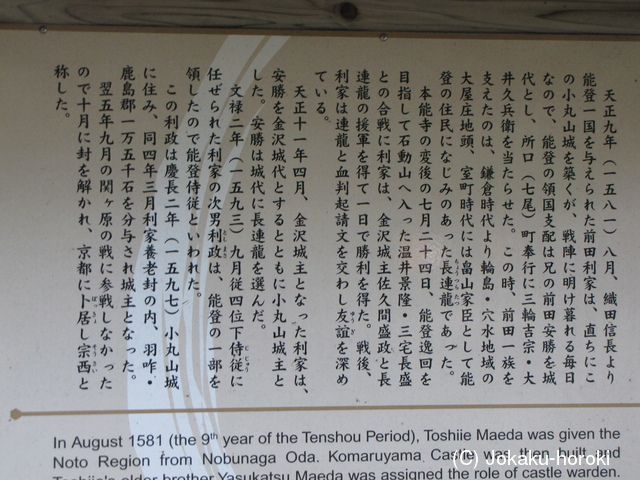 天正九年（一五八一）八月、織田信長より
能登一国を与えられた前田利家は、直ちにこ
の小丸山城を築くが、戦陣に明け暮れる毎日
なので、能登の領国支配は兄の前田安勝を城
代とし、所口（七尾）町奉行に三輪吉宗・大
井久兵衛を当たらせた。この時、前田一族を
支えたのは、鎌倉時代より輪島・穴水地域の
大屋庄地頭、室町時代には畠山家臣として能
登の住民になじみのあった長連龍であった。
本能寺の変後の七月二十四日、能登逸回を
目指して石動山へ入った温井景隆・三宅長盛
との合戦に利家は、金沢城主佐久間盛政と長
連龍の援軍を得て一日で勝利を得た。戦後、
利家は連龍と血判起請文を交わし友誼を深め
ている。
天正十一年四月、金沢城主となった利家は、
安勝を金沢城代とするとともに小丸山城主と
した。安勝は城代に長連龍を選んだ。
文禄二年（一五九三）九月従四位下侍従に
任ぜられた利家の次男利政は、能登の一部を
領したので能登侍従といわれた。
この利政は慶長二年（一五九七）小丸山城
に住み、同四年三月利家養老封の内、羽咋・
鹿島郡一万五千石を分与され城主となった。
翌五年九月の関ヶ原の戦に参戦しなかった
ので十月に封を解かれ、京都に卜居し宗西と
称した。
In August 1581 (the 9th year of the Tenshou Period), Toshiie Maeda was given the
Noto Region from Nobunaga Oda. Komaruyama Castle was then built and
Toshiie's elder brother Yasukatsu Maeda was assigned the role of castle warden.
(c) Jokaku-horoki